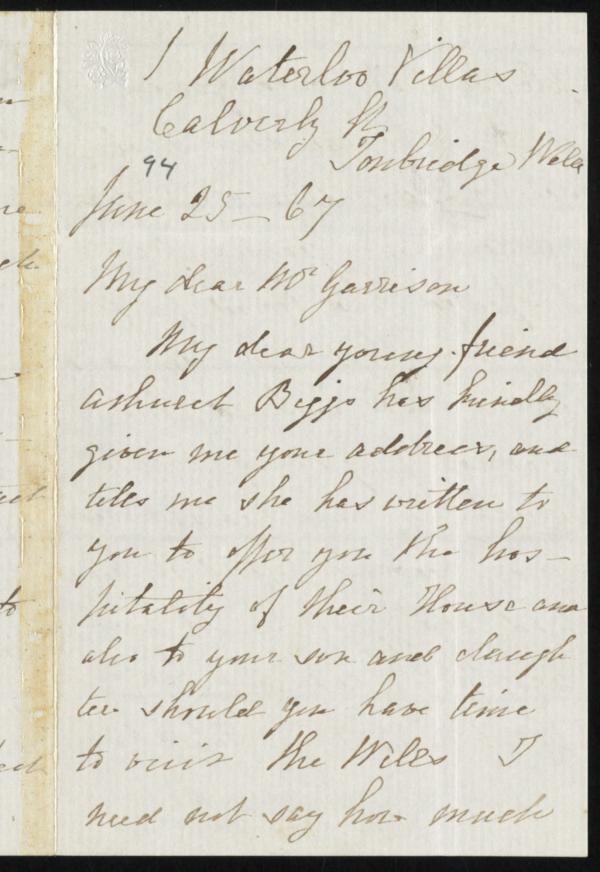 1 Waterloo Villas
Calverly St
Tonbridge Wells
94
June 25 - 67
My dear Mr Garrison
My dear young friend
Ashurst Biggs has kindly
given me your address, and
tells me she has written to
you to offer you the hos-
pitality of their House and
also to your son and daugh
ter should you have time
to visit the Wells I
need not say how much